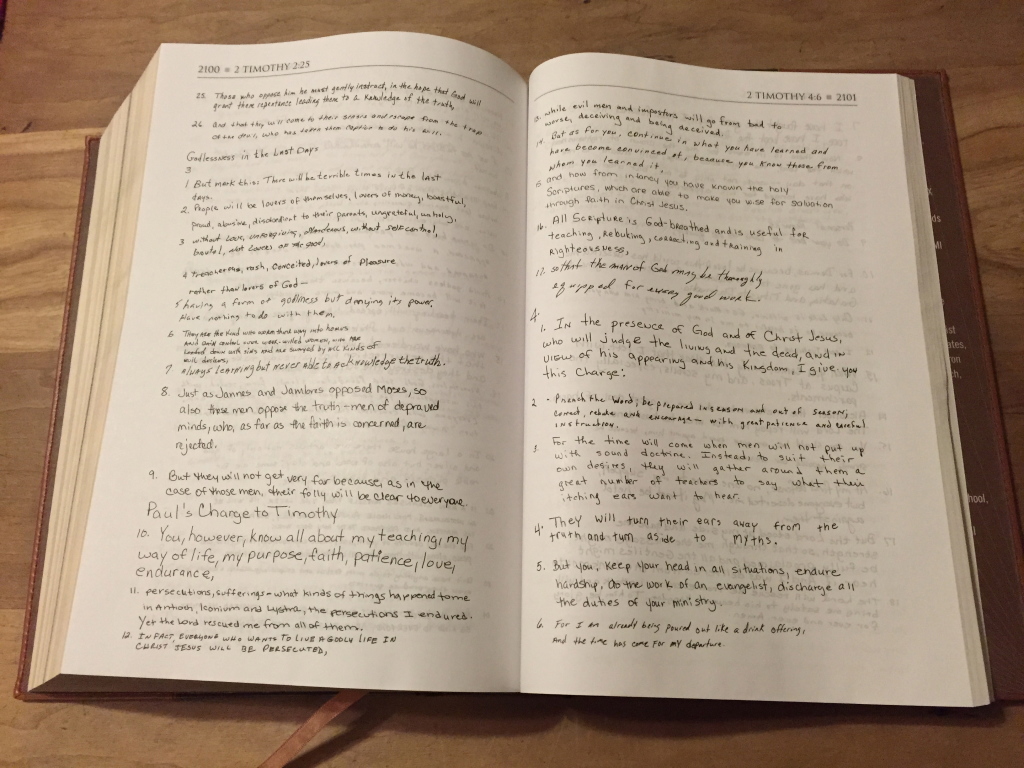 2100 ■ 2 TIMOTHY 2:25
25. Those who oppose him he must gently instruct, in the hope that God will
grant them repentance leading them to a knowledge of the truth,
26 and that they will come to their senses and escape from the trap
of the devil, who has taken them captive to do his will.
Godlessness in the Last Days
3
1 But mark this: There will be terrible times in the last
days.
2. People will be lovers of themselves, lovers of money, boastful,
proud, abusive, disobedient to their parents, ungrateful, unholy,
3 without love, unforgiving, slanderous, without self control,
brutal, not lovers of the good,
4 treacherous, rash, conceited, lovers of pleasure
rather than lovers of God—
5 having a form of godliness but denying its power,
Have nothing to do with them.
6 They are the kind who worm their way into homes
and gain control over weak-willed women, who are
loaded down with sins and are swayed by all kinds of
evil desires,
7 always learning but never able to acknowledge the truth.
8. Just as Jannes and Jambres opposed Moses, so
also these men oppose the truth - men of depraved
minds, who, as far as the faith is concerned, are
rejected.
9. But they will not get very far because, as in the
case of those men, their folly will be clear to everyone.
Paul's Charge to Timothy
10. You, however, know all about my teaching, my
way of life, my purpose, faith, patience, love,
endurance,
11. persecutions, sufferings - what kinds of things happened to me
in Antioch, Iconium and Lystra, the persecutions I endured.
Yet the Lord rescued me from all of them.
12. IN FACT, EVERYONE WHO WANTS TO LIVE A GODLY LIFE IN
CHRIST JESUS WILL BE PERSECUTED,
2 TIMOTHY 4:6 ■ 2101
13. while evil men and impostors will go from bad to
worse, deceiving and being deceived.
14. But as for you, continue in what you have learned and
have become convinced of, because you know those from
whom you learned it,
15 and how from infancy you have known the holy
Scriptures, which are able to make you wise for salvation
through faith in Christ Jesus.
16. All Scripture is God-breathed and is useful for
teaching, Rebuking, correcting and training in
Righteousness,
17. so that the man of God may be thoroughly
equipped for every good work.
4.
1. In the presence of God and of Christ Jesus,
who will judge the living and the dead, and in
view of his appearing and his kingdom, I give you
this Charge:
2 . Preach the Word; be prepared in season and out of season;
correct, rebuke and encourage — with great patience and careful
instruction.
3. For the time will come when men will not put up
with sound doctrine. Instead, to suit their
own desires, they will gather around them a
great number of teachers to say what their
itching ears want to hear.
4. They will turn their ears away from the
truth and turn aside to myths.
5. But you, keep your head in all situations, endure
hardship, do the work of an evangelist, discharge all
the duties of your ministry.
6. For I am already being poured out like a drink offering,
and the time has come for my departure.